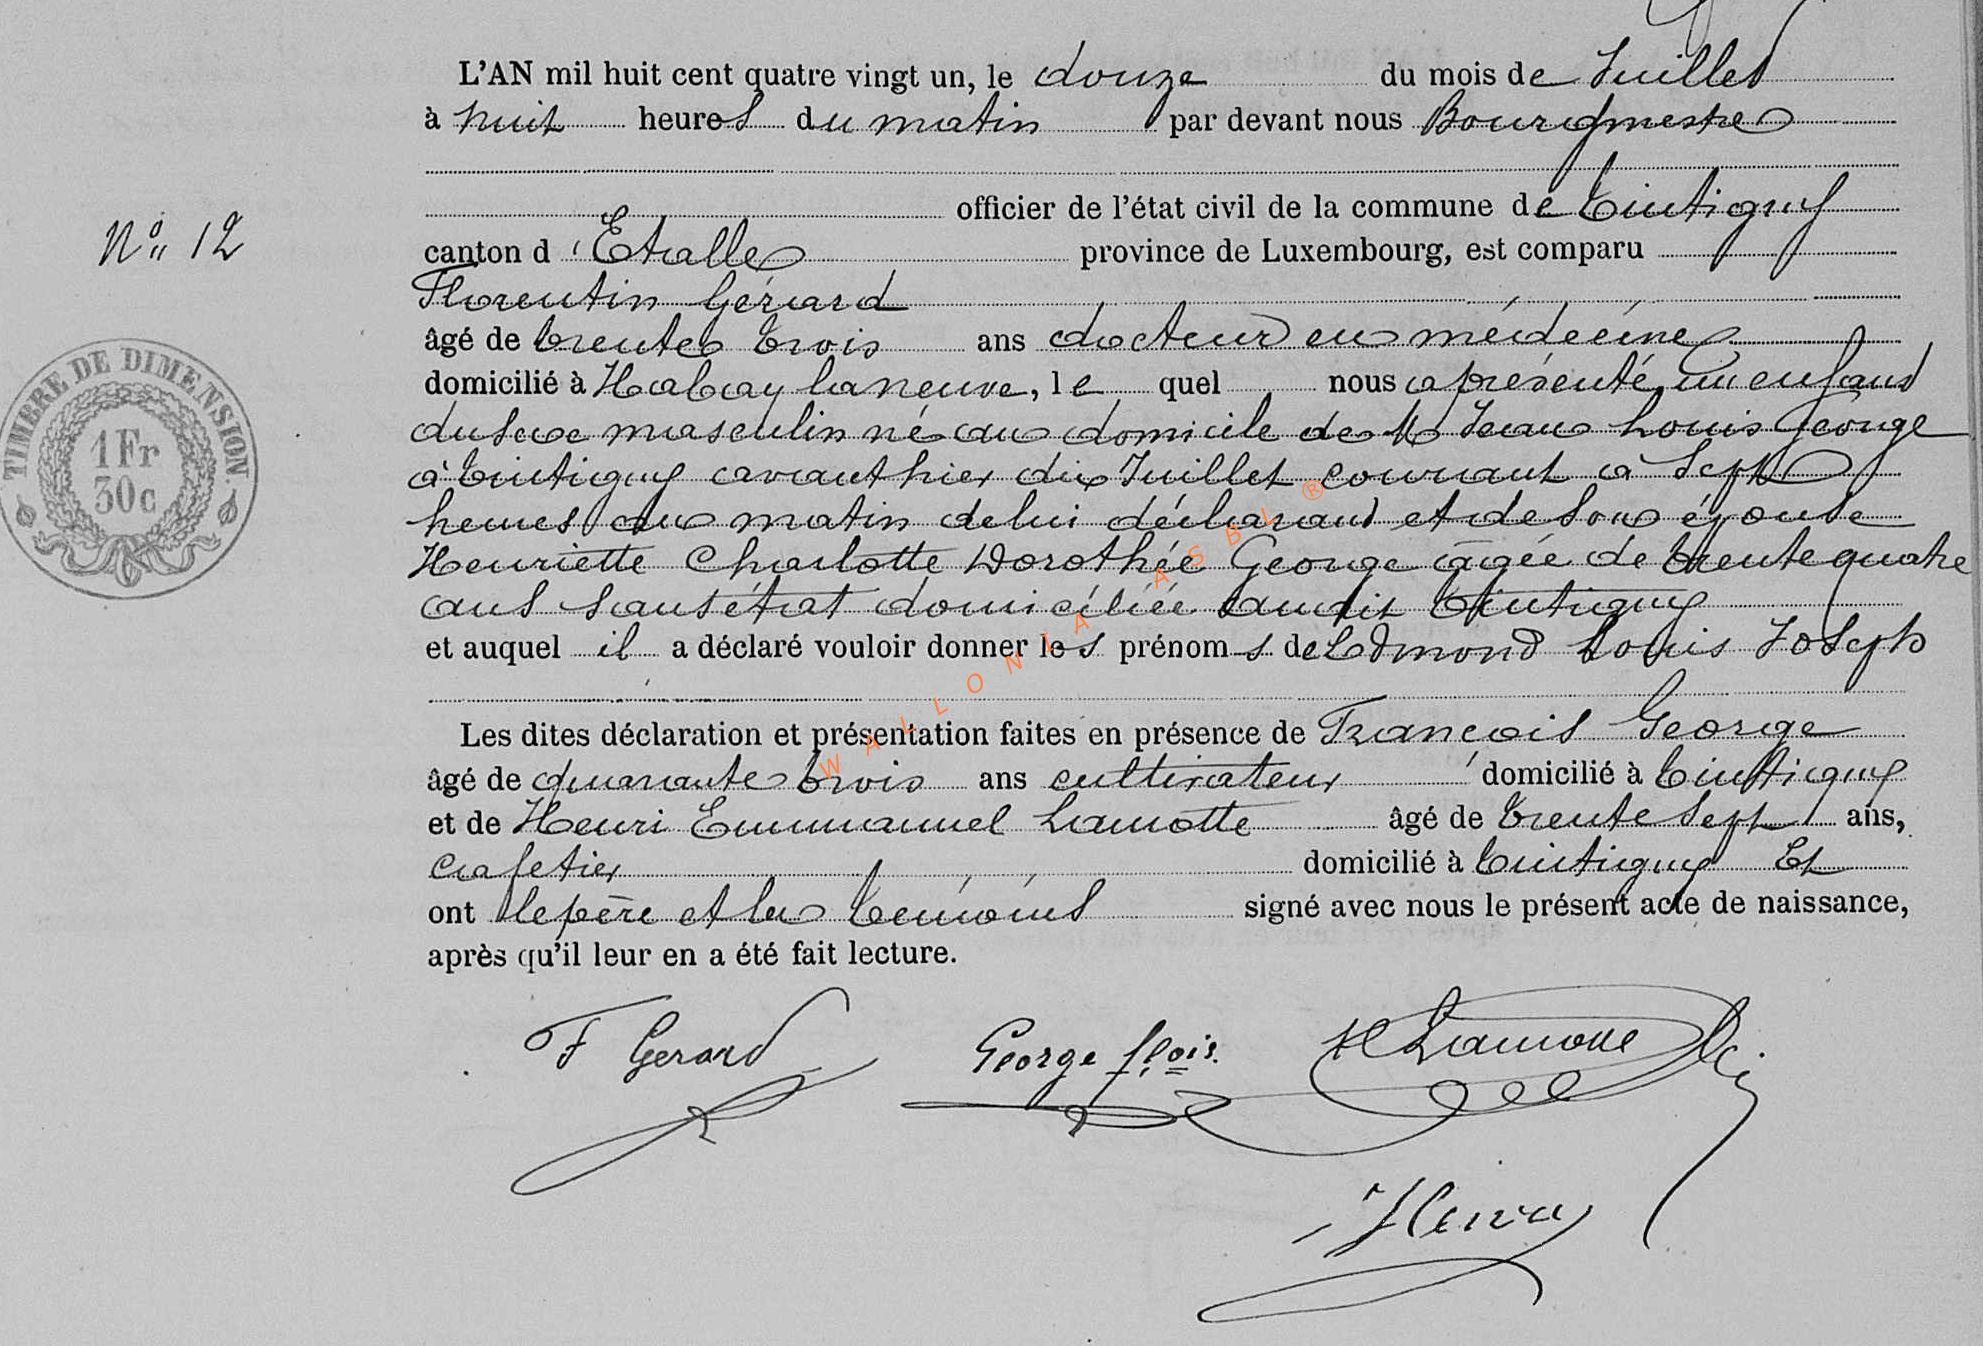 L'AN mil huit cent quatre vingt un, le douze du mois de Juillet
à huit heures du matin par devant nous Bourgmestre
officier de l'état civil de la commune de Tintigny
N° 12
canton d'Etalle province de Luxembourg, est comparu
Florentin Gérard
âgé de trente trois ans docteur en médecine
domicilié à Habay la neuve, le quel nous a présenté un enfant
du sexe masculin né au domicile de Mr Jean Louis George
à Tintigny avant hier dix Juillet courant à Sept
heures du matin de lui déclarant et de son épouse
Henriette Charlotte Dorothée George âgée de trente quatre
ans sans état domiciliée audit Tintigny
et auquel il a déclaré vouloir donner les prénoms de Edmond Louis Joseph
Les dites déclaration et présentation faites en présence de François George
âgé de quarante trois ans cultivateur domicilié à Tintigny
et de Henri Emmanuel Lamotte âgé de trente Sept ans,
cafetier domicilié à Tintigny Et
ont le père et les témoins signé avec nous le présent acte de naissance,
après qu'il leur en a été fait lecture.
F Gerard George fçois. H Lamotte
TIMBRE DE DIMENSION.
1 Fr
30c
WALLONIA ASBL ®